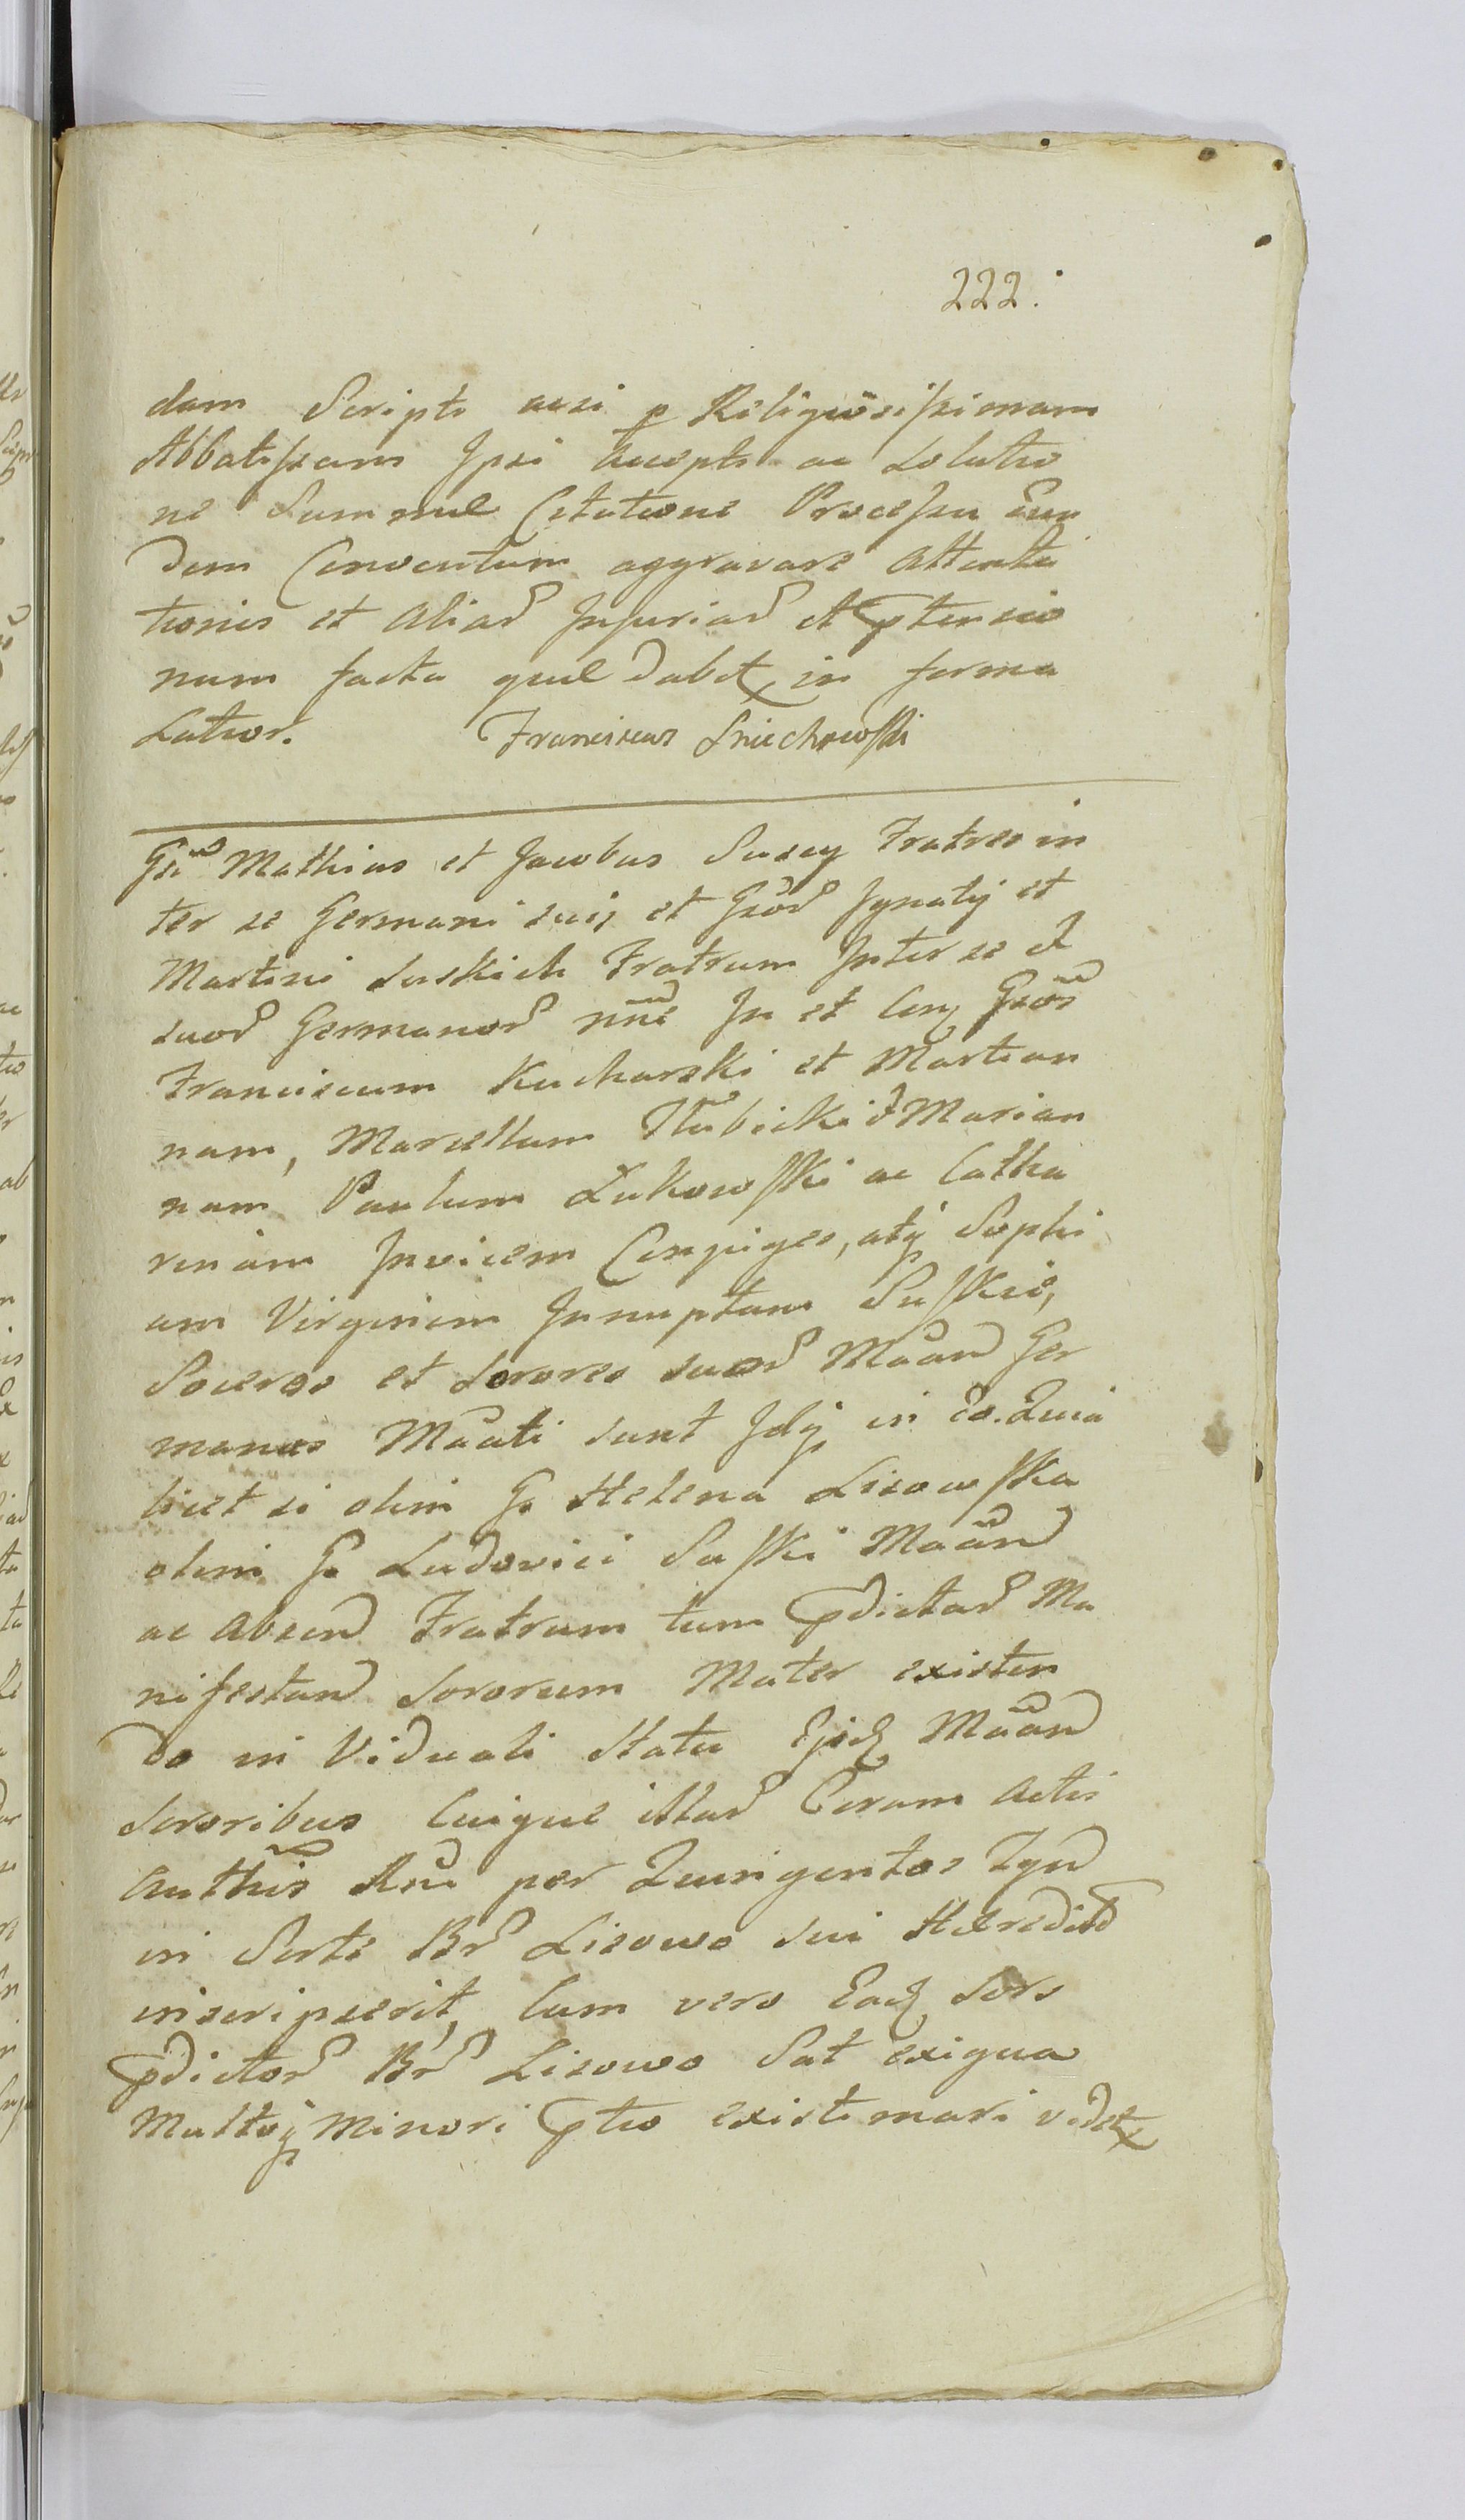 222.
dam Scripti acsi p Religiosissimam
Abbatissam Ipsi accepti ac Solutio
ne Summae Citatione Processu Eun
dem Conventum aggravare attenta
tionis et aliar Injuriar et Ptensio
num facta quae dabit in forma
Latior. Franciscus Sniechowski
Gsi Mathias et Jacobus Suscy Fratres in
ter se Germani suis et Gsor Ignatij et
Martini Suskich Fratrum Inter se et
suor Germanor nne In et Con Gsos
Franciscum Kucharski et Martian
nam, Marcellum Hłubicki et Marian
nam Paulum Łukowski ac Catha
rinam Invicem Conjuges, atq Sophi
am Virginem Innuptam Suskie,
Soceros et Sorores suas Maan Ger
manas Maati sunt Idq in Eo. Quia
licet si olim G Helena Lisowska
olim G Ludovici Suski Maan
ac Absen Fratrum tum Pdictar Ma
nifestan Sororum Mater existen
do in Viduali Statu Ejsd Maan
Sororibus Cuique illar Coram Actis
Authis Rni per Quingentos Tyn
in Sorte Br Lisowo sui Haeredit
inscripserit, Cum vero Ead Sors
Pdictor Br Lisowo Sat exigua
Multoq Minori Ptio existimari videt